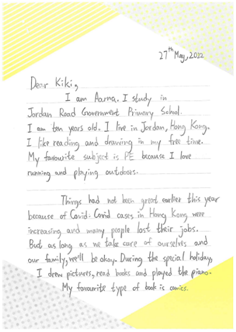 27th May, 2022
Dear Kiki,
I am Aarna. I study in
Jordan Road Government Primary School.
I am ten years old. I live in Jordan, Hong Kong.
I like reading and drawing in my free time.
My favourite subject is PE because I love
running and playing outdoors.
Things had not been great earlier this year
because of Covid. Covid cases in Hong Kong were
increasing and many people lost their jobs.
But as long as we take care of ourselves and
our family, we'll be okay. During the special holiday,
I drew pictures, read books and played the piano.
My favourite type of book is comics.